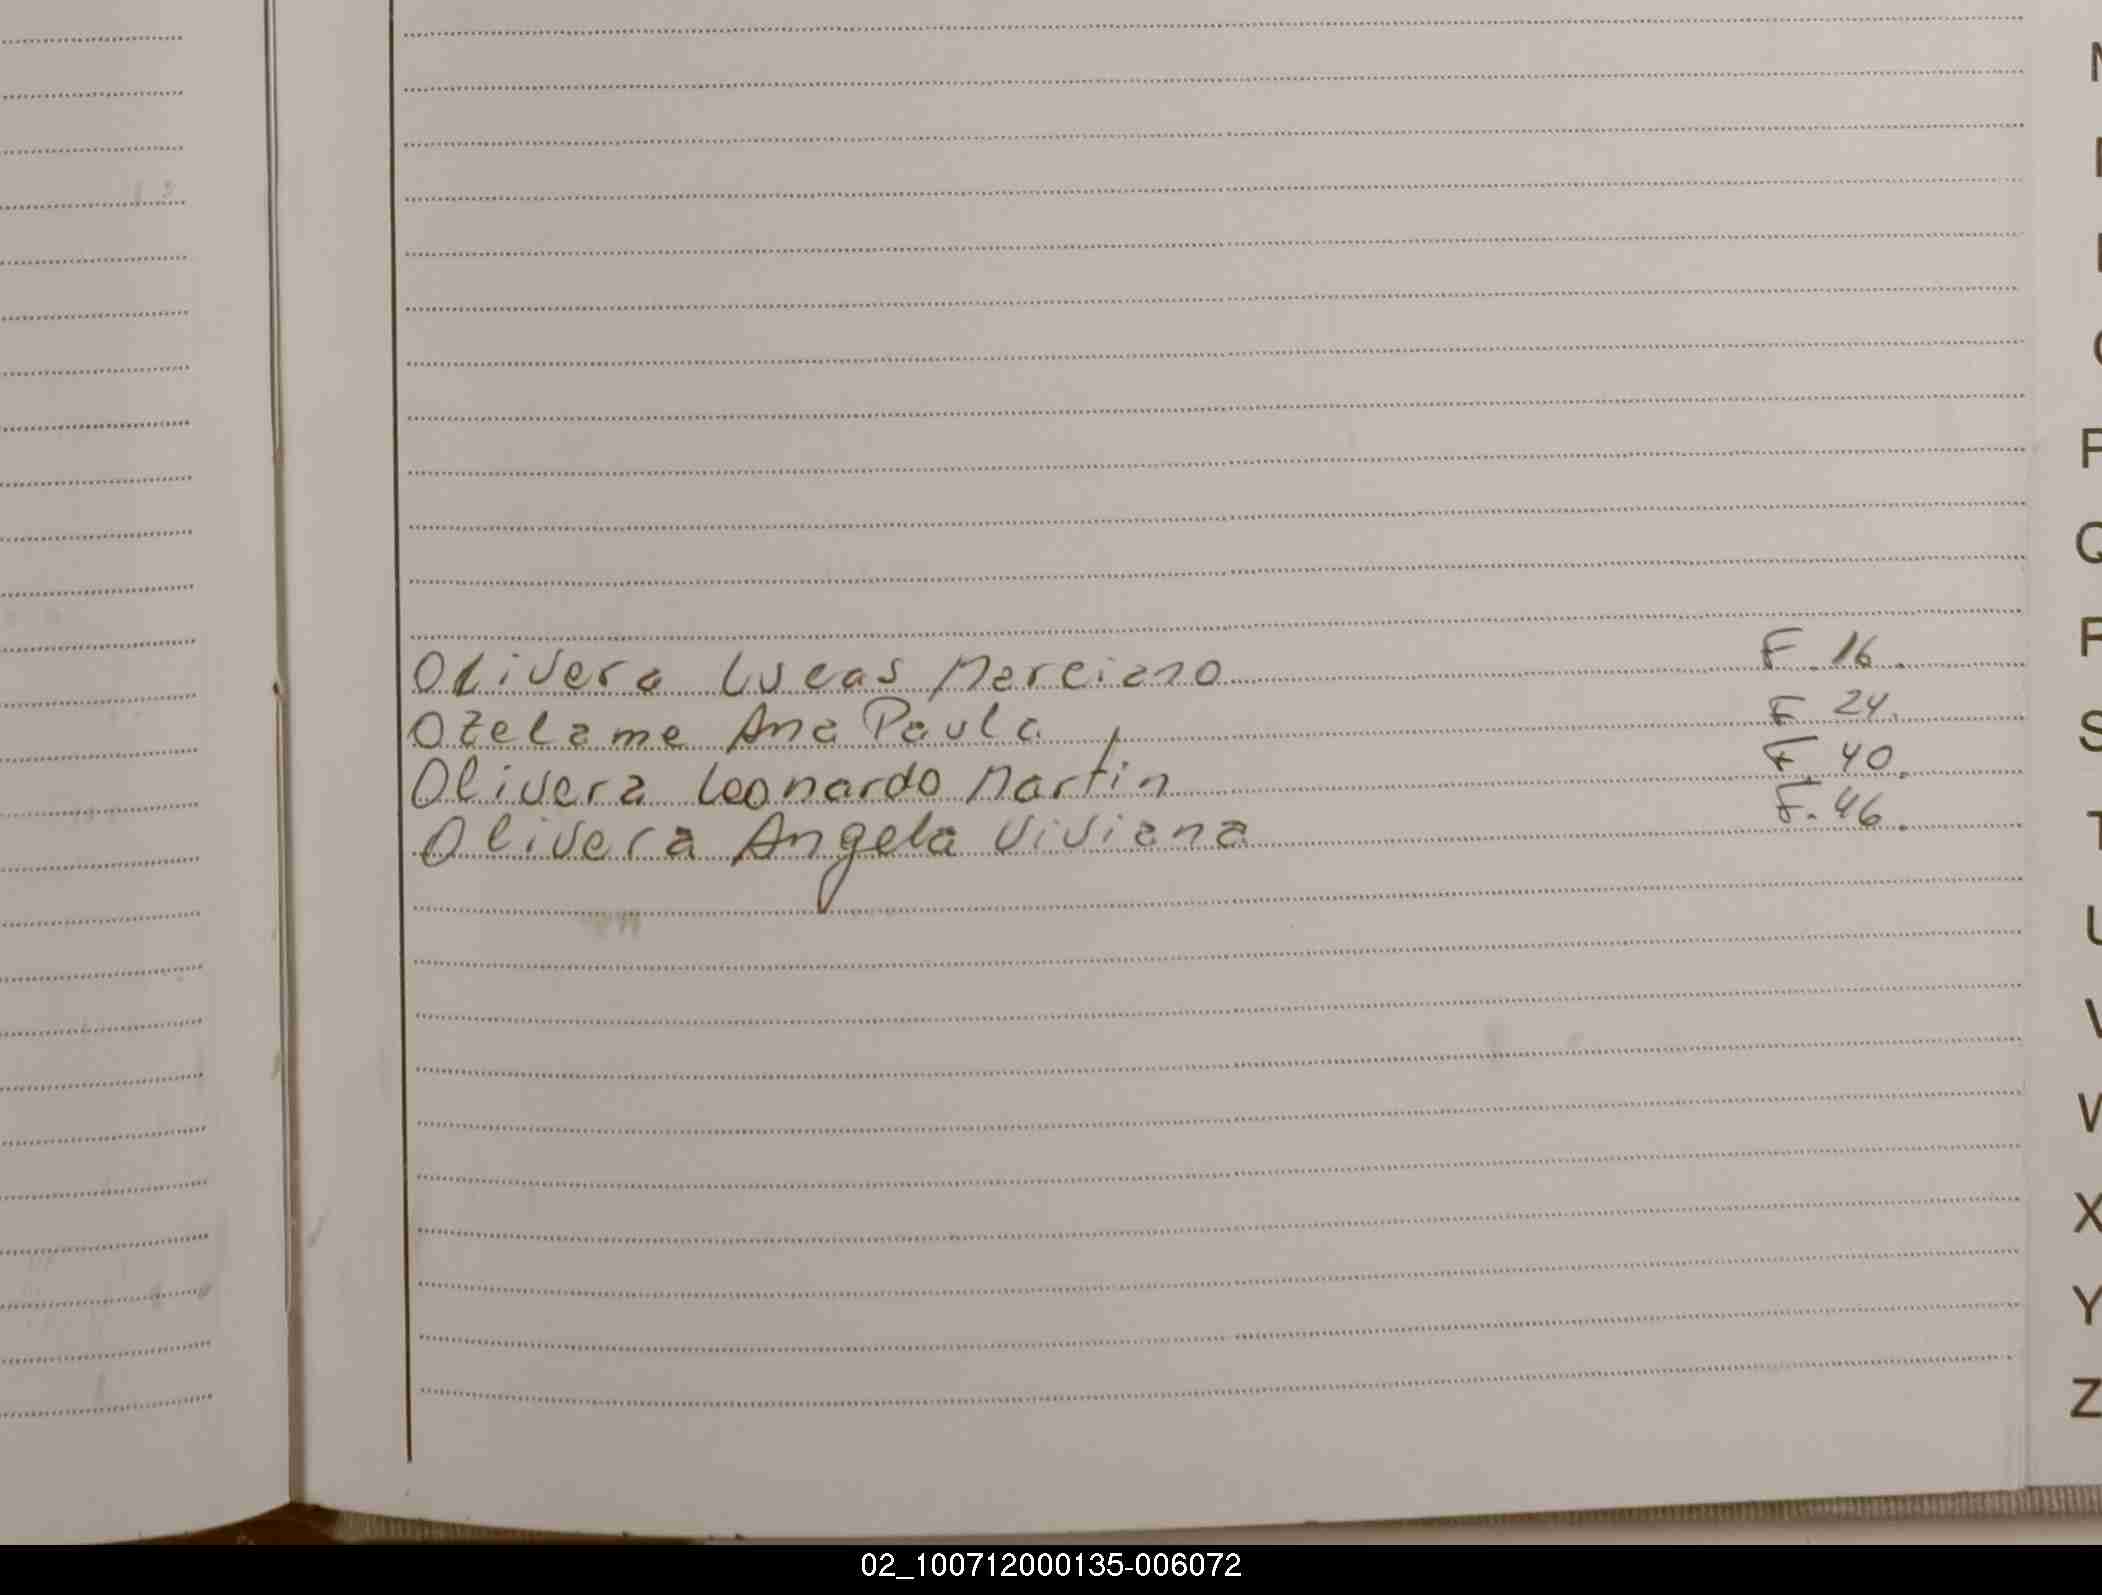 Olivera Lucas Marciano F. 16.
Otelame Ana Paula F 24.
Olivera Leonardo Martín F. 40.
Olivera Angela Viviana F. 46.
Q
S
T
U
V
W
X
Y
Z
02_100712000135-006072